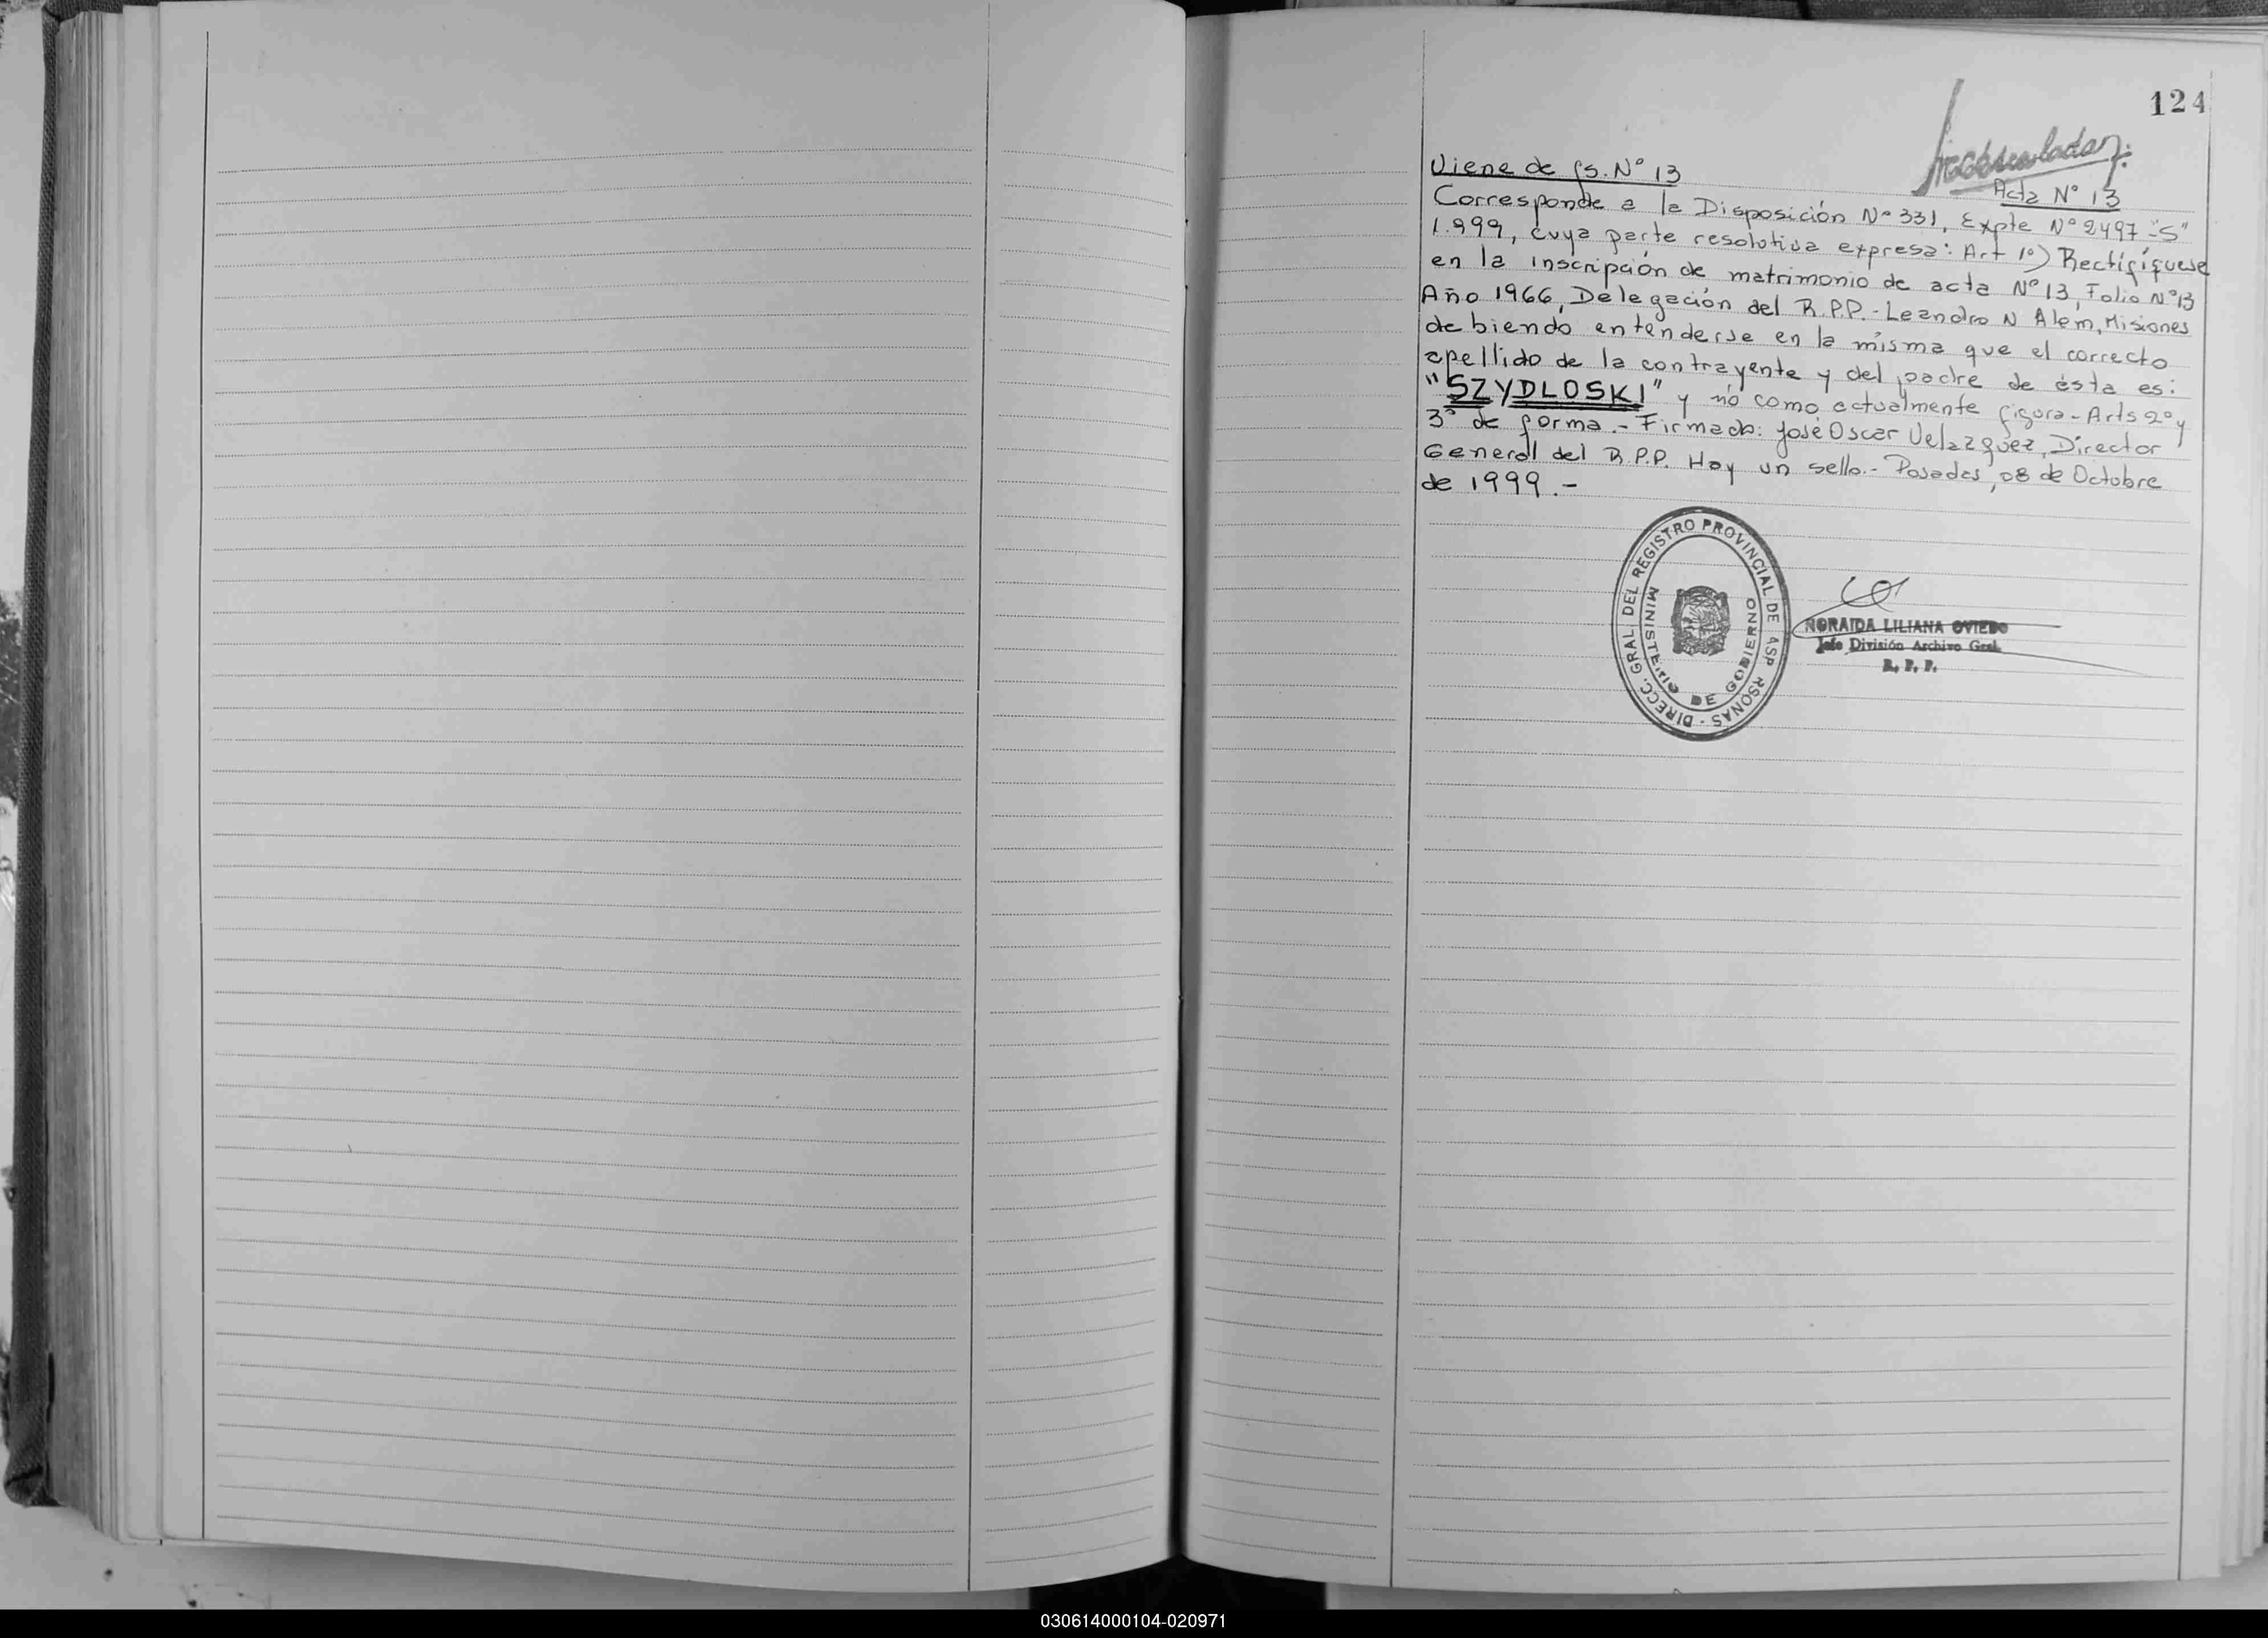 124
Viene de fs. Nº 13
Acta Nº 13
Corresponde a la Disposición Nº 331, Expte Nº 2497-"S"
1.999, cuya parte resolutiva expresa: Art 1º) Rectifíquese
en la inscripción de matrimonio de acta Nº 13, Folio Nº 13
Año 1966, Delegación del R.P.P.- Leandro N Alem, Misiones
debiendo entenderse en la misma que el correcto
apellido de la contrayente y del padre de ésta es:
"SZYDLOSKI" y nó como actualmente figura- Arts 2º y
3º de forma.- Firmado: José Oscar Velazquez, Director
General del R.P.P. Hay un sello.- Posadas, 08 de Octubre
de 1999.-
DIRECC. GRAL DEL REGISTRO PROVINCIAL DE RSONAS
MINISTERIO DE GOBIERNO
NORAIDA LILIANA OVIEDO
Jefe División Archivo Gral.
R. P. P.
030614000104-020971